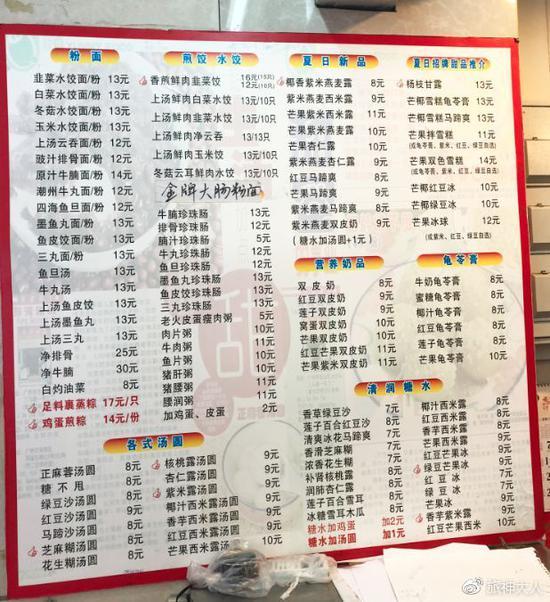 粉面
韭菜水饺面/粉 13元
白菜水饺面/粉 13元
冬菇水饺面/粉 13元
玉米水饺面/粉 13元
上汤云吞面/粉 12元
豉汁排骨面/粉 12元
原汁牛腩面/粉 14元
潮州牛丸面/粉 12元
四海鱼旦面/粉 12元
墨鱼丸面/粉 13元
鱼皮饺面/粉 13元
三丸面/粉 13元
鱼旦汤 13元
牛丸汤 13元
上汤鱼皮饺 13元
上汤墨鱼丸 13元
上汤三丸 13元
净排骨 25元
净牛腩 30元
白灼油菜 8元
足料裹蒸粽 17元/只
鸡蛋煎粽 14元/份
煎饺 水饺
香煎鲜肉韭菜饺 16元(15只)
12元(10只)
上汤鲜肉白菜水饺 13元/10只
上汤鲜肉韭菜水饺 13元/10只
上汤鲜肉净云吞 13/13只
上汤鲜肉玉米饺 13元/10只
冬菇云耳鲜肉水饺 13元/10只
金牌大肠粉面
牛腩珍珠肠 13元
排骨珍珠肠 12元
腩汁珍珠肠 5元
牛丸珍珠肠 12元
鱼旦珍珠肠 12元
墨鱼丸珍珠肠 13元
鱼皮饺珍珠肠 13元
三丸珍珠肠 13元
老火皮蛋瘦肉粥 5元
肉片粥 10元
牛肉粥 11元
鱼片粥 10元
猪肝粥 10元
猪腰粥 11元
腰润粥 11元
加鸡蛋、皮蛋 2元
夏日新品
椰香紫米燕麦露 8元
紫米燕麦西米露 9元
芒果紫米西米露 11元
芒果紫米燕麦露 10元
芒果杏仁露 9元
紫米燕麦杏仁露 9元
红豆马蹄爽 8元
芒果马蹄爽 9元
紫米燕麦马蹄爽 9元
紫米燕麦双皮奶 9元
(糖水加汤圆+1元)
夏日招牌甜品推介
杨枝甘露 13元
芒椰雪糕龟苓膏 13元
芒椰雪糕马蹄爽 13元
芒果拌雪糕 11元
(或龟苓膏、紫米、红豆、绿豆自选)
芒果双色雪糕 14元
(或龟苓膏、紫米、红豆、绿豆自选)
芒椰红豆冰 12元
芒椰绿豆冰 12元
芒果冰球 12元
(或紫米、红豆、绿豆自选)
营养奶品
双皮奶 8元
红豆双皮奶 9元
莲子双皮奶 9元
窝蛋双皮奶 10元
芒果双皮奶 10元
红豆芒果双皮奶 11元
紫米芒果双皮奶 11元
龟苓膏
牛奶龟苓膏 8元
蜜糖龟苓膏 8元
椰汁龟苓膏 8元
红豆龟苓膏 9元
莲子龟苓膏 9元
芒果龟苓膏 10元
清润糖水
香草绿豆沙 7元
莲子百合红豆沙 8元
清爽冰花马蹄爽 7元
香滑芝麻糊 7元
浓香花生糊 7元
补肾核桃露 8元
润肺杏仁露 8元
莲子百合雪耳 8元
冰糖雪耳木瓜 8元
糖水加鸡蛋 加2元
糖水加汤圆 加1元
椰汁西米露 8元
红豆西米露 8元
香芋西米露 8元
芒果西米露 9元
红豆芒果冰 9元
绿豆芒果冰 9元
红豆冰 7元
绿豆冰 7元
芒果冰 8元
香芋紫米露 9元
红豆芒果西米 10元
各式汤圆
正麻蓉汤圆 8元
糖不甩 8元
绿豆沙汤圆 8元
红豆沙汤圆 9元
马蹄沙汤圆 8元
芝麻糊汤圆 8元
花生糊汤圆 8元
核桃露汤圆 9元
杏仁露汤圆 9元
紫米露汤圆 9元
椰汁西米露汤圆 9元
香芋西米露汤圆 9元
红豆西米露汤圆 9元
芒果西米露汤圆
旅神夫人